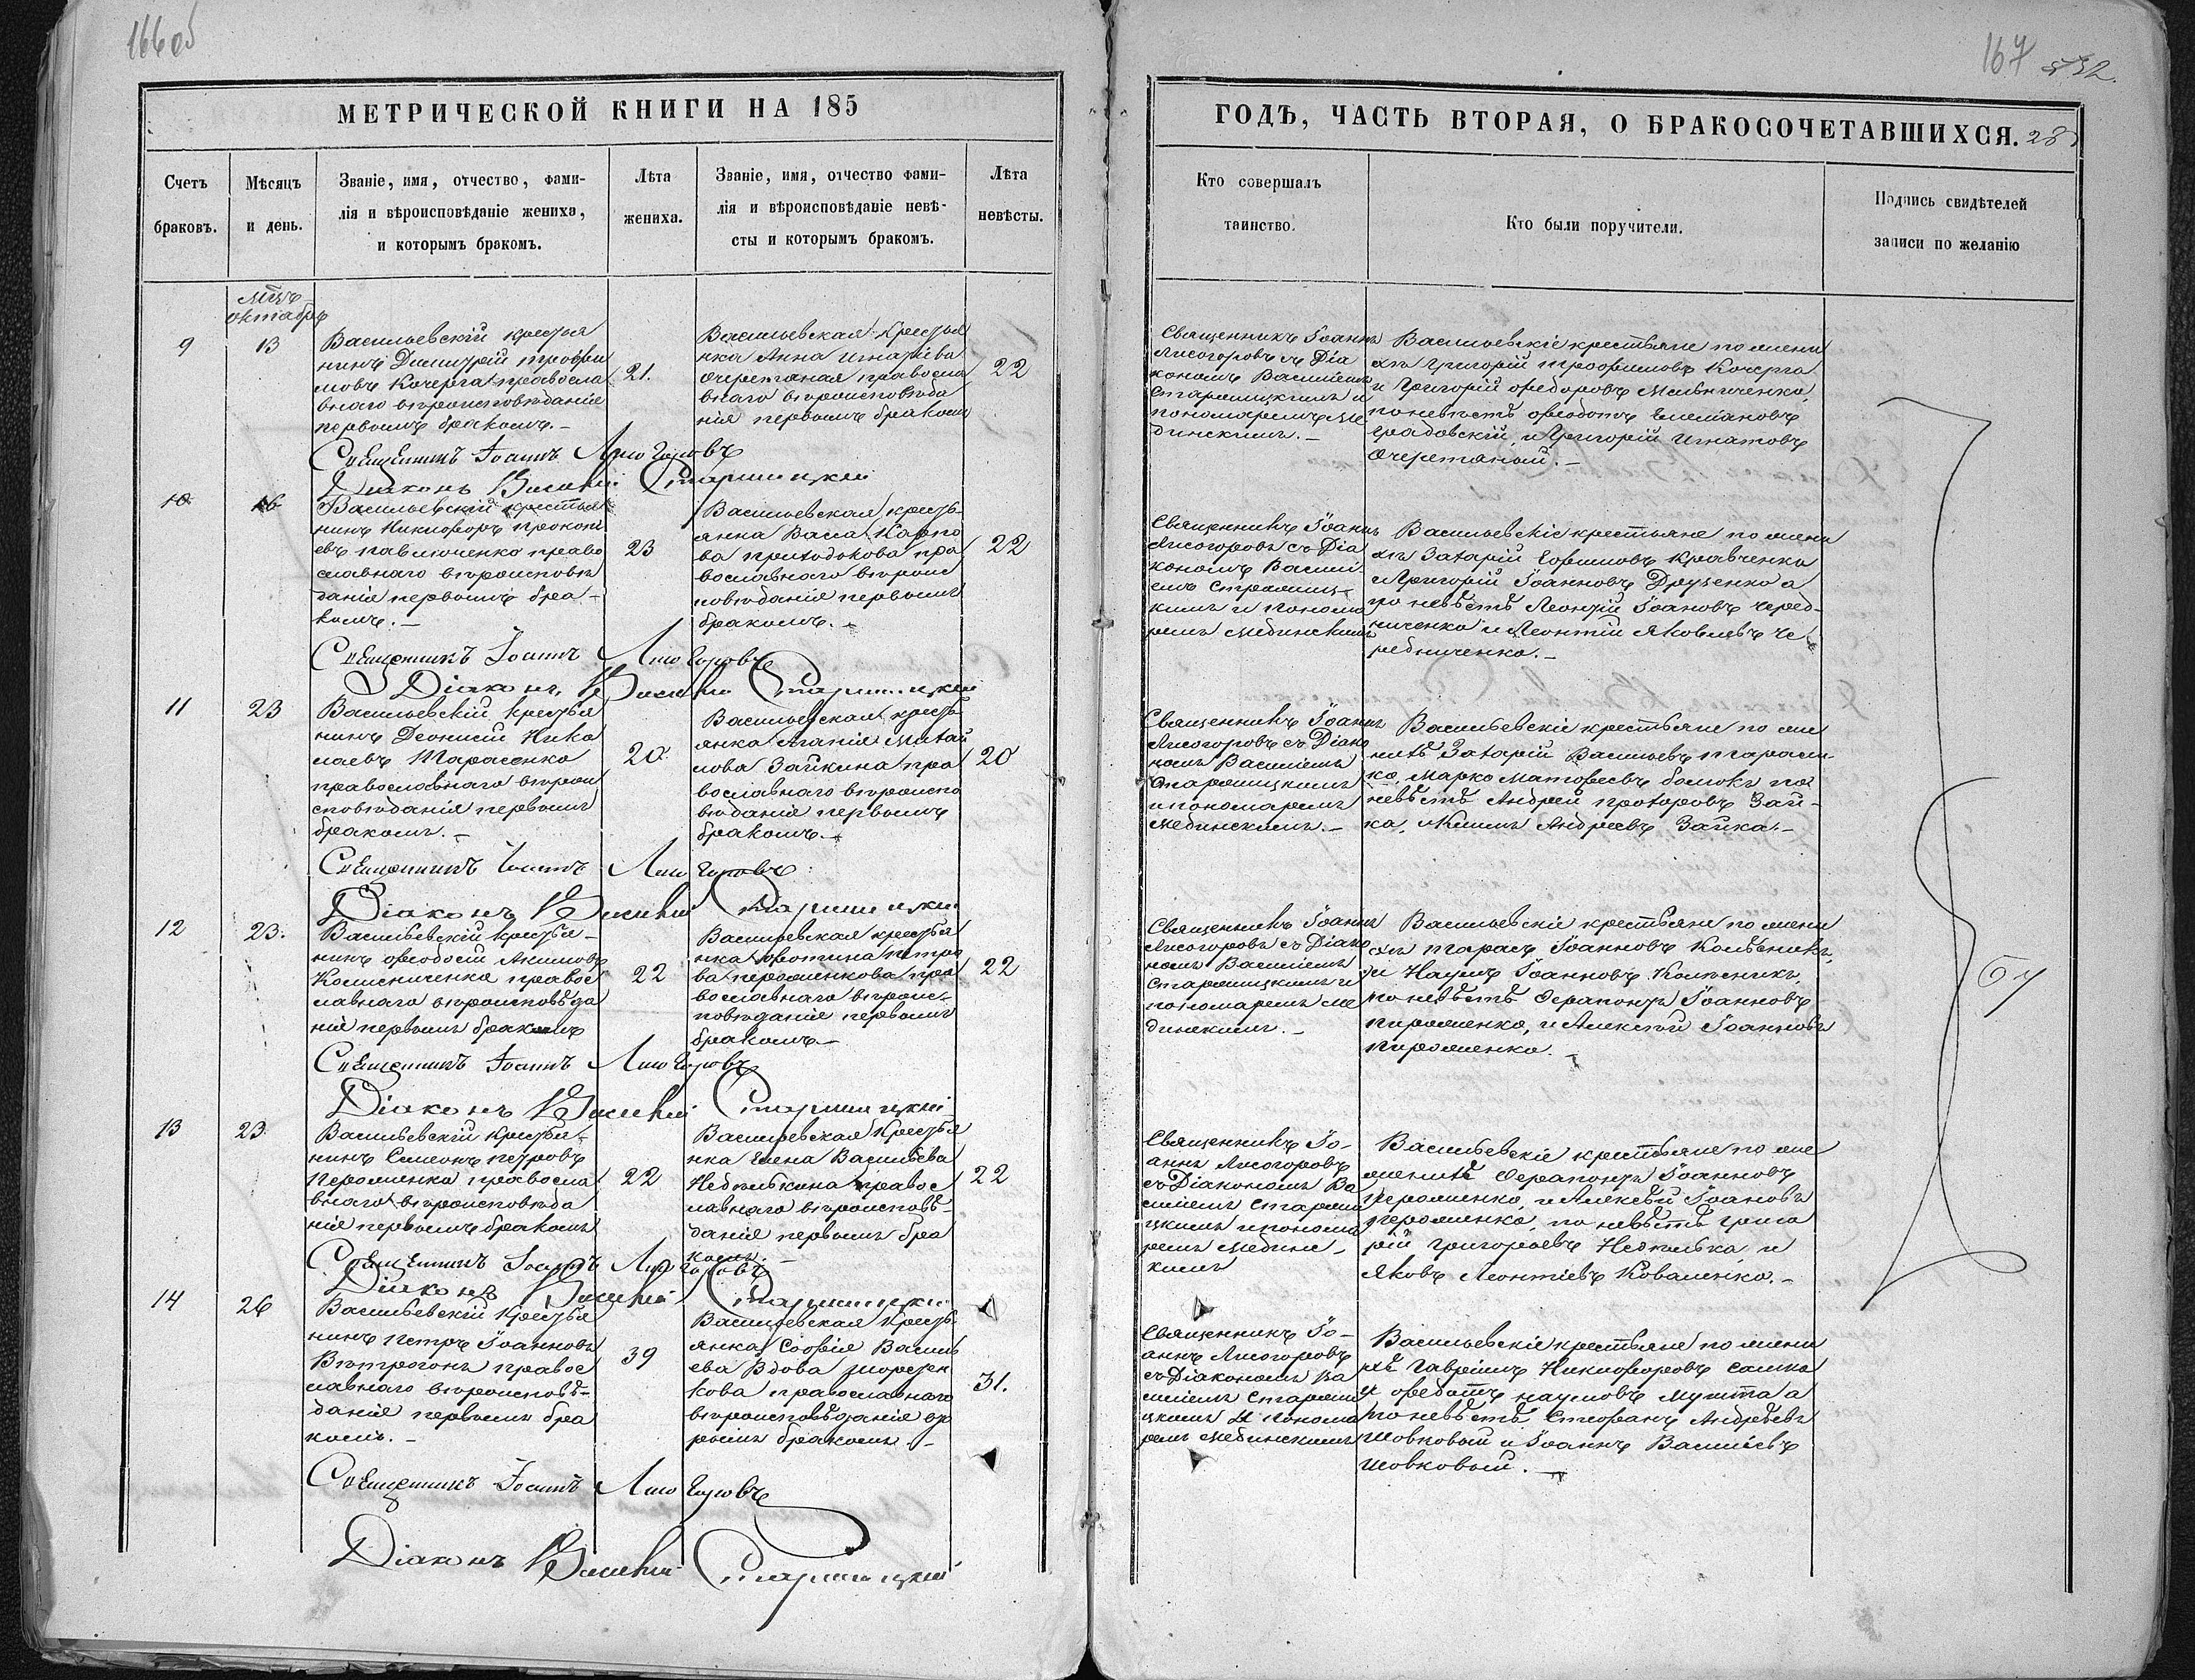 166об
МЕТРИЧЕСКОЙ КНИГИ НА 185
Счетъ браковъ.
Мѣсяцъ и день.
Званіе, имя, отчество, фами-
лія и вѣроисповѣданіе жениха,
и которымъ бракомъ.
Лѣта жениха.
Званіе, имя, отчество фами-
лія и вѣроисповѣданіе невѣ-
сты и которымъ бракомъ.
Лѣта невѣсты.
октабръ
9
13
Васильевскій крестья
нинъ Димитрій Трофи
мовъ Кочерга правосла
внаго вѣроисповѣданія
первымъ бракомъ.-
21.
Васильевская крестья
нка Анна Игнатіева
Очеретяная правосла
внаго вѣроисповѣда
нія первымъ бракомъ
22
Священникъ Іоаннъ Лисогоровъ
Діаконъ Василій Старишицкій
10
16
Васильевскій крестья
нинъ Никифоръ Прокопі
евъ Павлюченко право
славнаго вѣроисповѣ
данія первымъ бра-
комъ.-
23
Васильевская кресть-
янка Васса Карпо
ва Приходькова пра
вославнаго вѣроис
повѣданія первымъ
бракомъ.-
22
Священникъ Іоаннъ Лисогоровъ
Діаконъ Василій Старишицкій
11
23
Васильевскій крестья
нинъ Деонисій Нико
лаевъ Тарасенко
православнаго вѣрои
сповѣданія первымъ
бракомъ.-
20
Васильевская кресть
янка Агапія Михай
лова Зайкина пра
вославнаго вѣроиспо
вѣданія первымъ
бракомъ.-
20
Священникъ Іоаннъ Лисогоровъ
Діаконъ Василій Старишицкій
12
23.
Васильевскій крестья-
нинъ Феодосій Акимовъ
Колесниченко правос
лавнаго вѣроисповѣда
нія первымъ бракомъ
22
Васильевская крестья
нка Фотина Петро
ва Перфименкова пра
вославнаго вѣроис-
повѣданія первымъ
бракомъ-
22
Священникъ Іоаннъ Лисогоровъ
Діаконъ Василій Старишицкій
13
23
Васильевскій крестья-
нинъ Симеонъ Петровъ
Перфименко правосла
внаго вѣроисповѣда
нія первымъ бракомъ
22
Васильевская крестья
нка Елена Васильева
правос
лавнаго вѣроисповѣ-
данія первымъ бра
комъ.-
22
Священникъ Іоаннъ Лисогоровъ
Діаконъ Василій Старишицкій
14
26
Васильевскій крестья
нинъ Петръ Іоанновъ
Вѣтрогонъ правос
лавнаго вѣроисповѣ-
данія первымъ бра
комъ.-
39
Васильевская кресть
янка Софія Василь
ева Вдова
кова православнаго
вѣроисповѣданія вто
рымъ бракомъ.-
31.
Священникъ Іоаннъ Лисогоровъ
Діаконъ Василій Старишицкій
167
ГОДЪ, ЧАСТЬ ВТОРАЯ, О БРАКОСОЧЕТАВШИХСЯ.
Кто совершалъ
таинство.
Кто были поручители.
Подпись свидѣтелей
записи по желанію
Священникъ Іоаннъ
Лисогоровъ съ Діа
кономъ Василіемъ
Старишицкимъ и
пономаремъ Ме
динскимъ.-
Васильевскіе крестьяне по жени
хѣ Григорій Трофимовъ Кочерга
и Григорій Федоровъ Мельниченко,
по невѣстѣ Феодотъ Емеліановъ
Градовскій, и Григорій Игнатовъ
Очеретяный.-
Священникъ Іоаннъ
Лисогоровъ съ Діа
кономъ Василі-
емъ Старишиц-
кимъ и понома
ремъ Мединскимъ
Васильевскіе крестьяне по жени
хѣ Захарій Ефимовъ Кравченко
и Григорій Іоанновъ Друзенко а
по невѣстѣ Леонтій Іоановъ Черед-
ниченко и Леонтій Яковлевъ Че-
редниченко.-
Священникъ Іоаннъ
Лисогоровъ съ Діако
номъ Василіемъ
Старишицкимъ
и пономаремъ
Мединскимъ.-
Васильевскіе крестьяне по же
нихѣ Захарій Васильевъ Тарасен
ко, Марко Матфеевъ по
невѣстѣ Андрей Прохоровъ Зай-
ка, Андреевъ Зайка.-
Священникъ Іоаннъ
Лисогоровъ съ Діако
номъ Василіемъ
Старишицкимъ и
пономаремъ Ме
динскимъ.-
Васильевскіе крестьяне по жени
хѣ Тарасъ Іоанновъ Колѣсникъ,
и Наумъ Іоанновъ Колѣсникъ,
по невѣстѣ Ферапонтъ Іоанновъ
Перфименко, и Алексѣй Іоанновъ
Перфименко.-
Священникъ Іо-
аннъ Лисогоровъ
съ Діакономъ Ва
силіемъ Стариши
цкимъ и понома
ремъ Медин-
скимъ
Васильевскіе крестьяне по же
нихѣ Ферапонтъ Іоанновъ
Перфименко, и Алексѣй Іоановъ
Перфименко, по невѣстѣ Григо
рій Григорьевъ и
Яковъ Леонтіевъ Коваленко.-
Священникъ Іо-
аннъ Лисогоровъ
съ Діакономъ Ва
силіемъ Стариши
цкимъ и понома
ремъ Мединскимъ
Васильевскіе крестьяне по жени
хѣ Гавріилъ Никифоровъ Сашко
и Федотъ Наумовъ а
по невѣстѣ Стефанъ Андреевъ
Шовковый и Іоаннъ Василіевъ
Шовковый.-